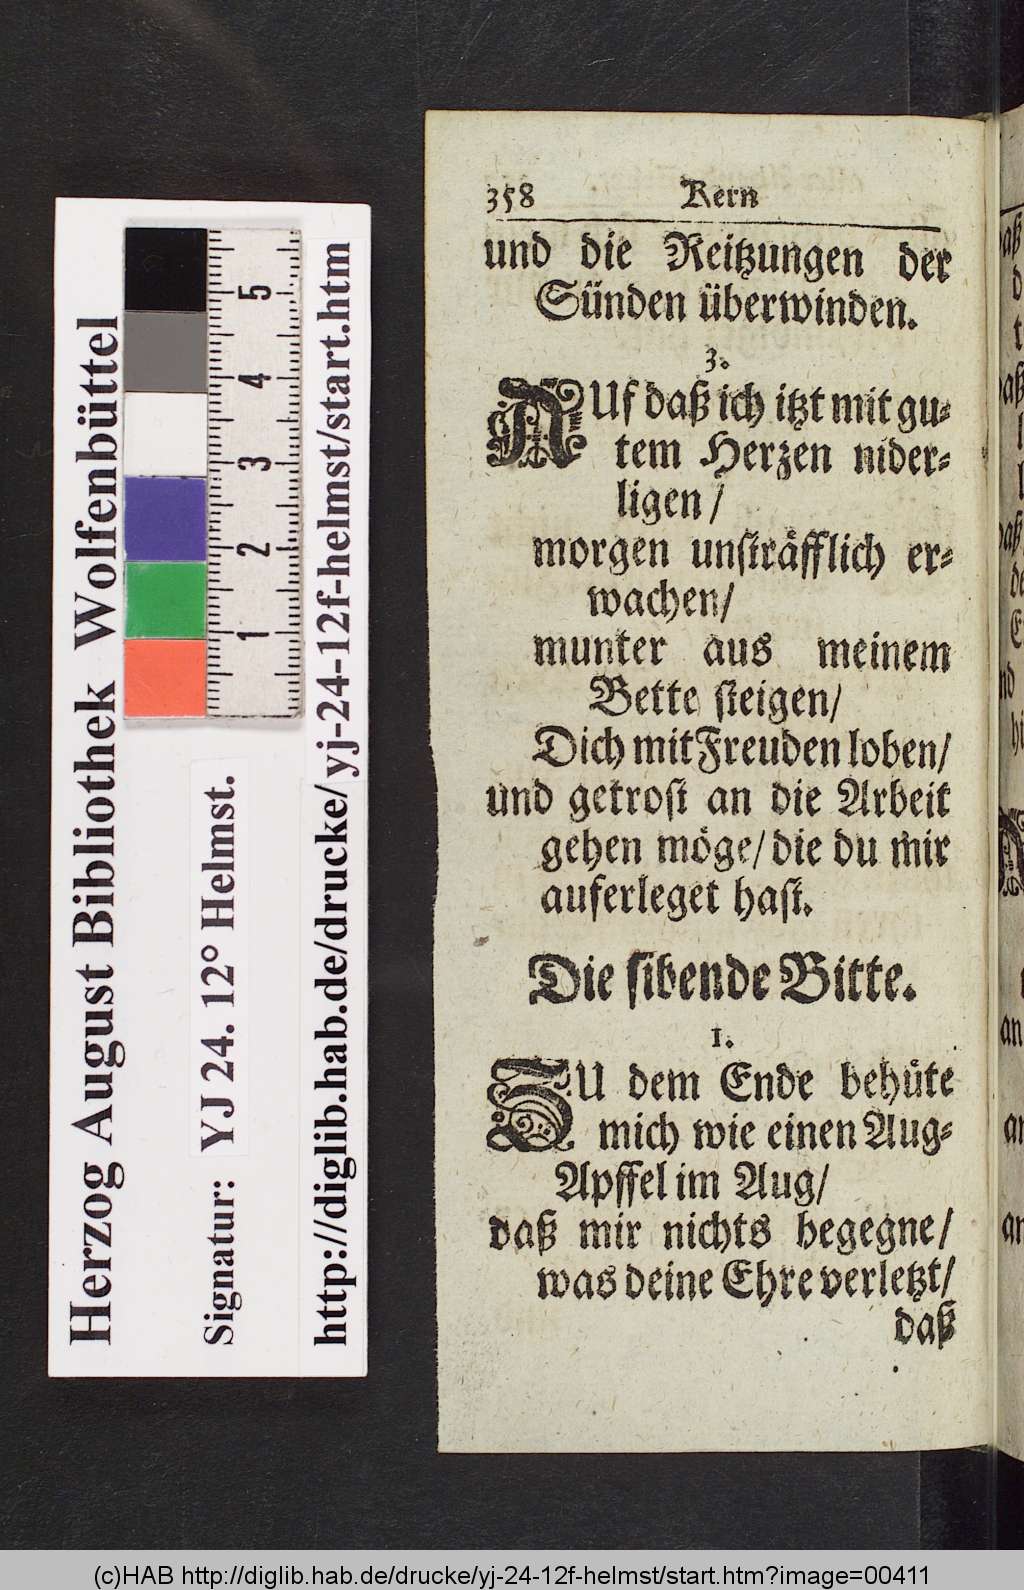 Herzog August Bibliothek Wolfenbüttel
Signatur: YJ 24. 12° Helmst.
http://diglib.hab.de/drucke/yj-24-12f-helmst/start.htm
1 2 3 4 5
358 Kern
und die Reitzungen der
Sünden überwinden.
3.
AUf daß ich itzt mit gu-
tem Herzen nider-
ligen /
morgen unsträfflich er-
wachen/
munter aus meinem
Bette steigen/
Dich mit Freuden loben/
und getrost an die Arbeit
gehen möge/ die du mir
auferleget hast.
Die sibende Bitte.
1.
ZU dem Ende behüte
mich wie einen Aug-
Apffel im Aug/
daß mir nichts begegne/
was deine Ehre verletzt/
daß
(c)HAB http://diglib.hab.de/drucke/yj-24-12f-helmst/start.htm?image=00411